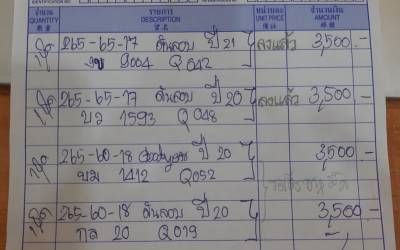 จำนวน QUANTITY
รายการ DESCRIPTION
หน่วยละ UNIT PRICE
จำนวนเงิน AMOUNT
265-65-17 ดันลอป ปี 21 ลงแล้ว 3,500.-
9004 Q042
265-65-17 ดันลอป ปี 20 ลงแล้ว 3,500.-
บว 1593 Q048
265-60-18 Goodyear ปี 20 3,500.-
ขม 1412 Q052
265-60-18 ดันลอป ปี 20 3,500.-
กล 20 Q019